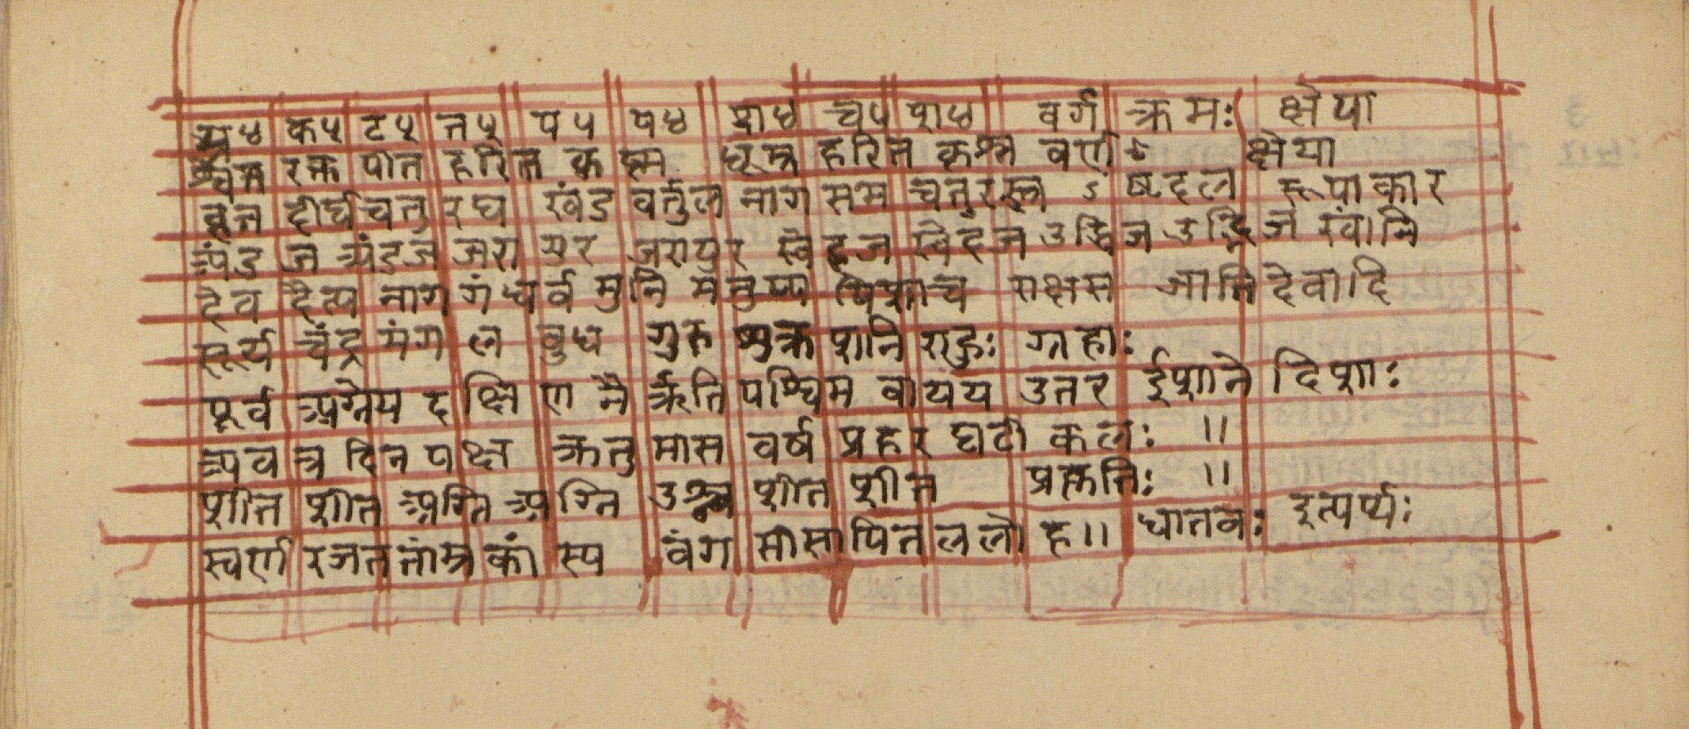 क५ ट५ त५ प५ य४ श४ च५ श४ वर्ग क्रमः क्षेया
रक्त पीत हरित धूम्र हरित कृश्न वर्ण क्षेया
दीर्घ चतु रघ खंड वर्तुल नाग सम चतुरस्त्र ऽ ष्टदल रूपाकार
अंड ज अंडज जरा यर जरायुर स्वेदज स्वेदज उद्भिज उद्भिज खांनि
देव दैत्य नाग गंधर्व मुनि मनुष्य पिशाच राक्षस जाति देवादि
सूर्य चंद्र मंगल बुध गुरु शुक्र शनि राहुः ग्रहाः
पूर्व अग्नेय दक्षिण नैर्ऋति पश्चिम वायय उत्तर ईशाने दिशाः
दिन पक्ष ऋतु मास वर्ष प्रहर घटी कलः ॥
शीत शीत अग्नि अग्नि उश्न शीत शीत प्रकृतिः ॥
स्वर्ण रजत तांम्र कांस्य वंग सीसा पितल लोह ॥ धातवः इत्यर्थः